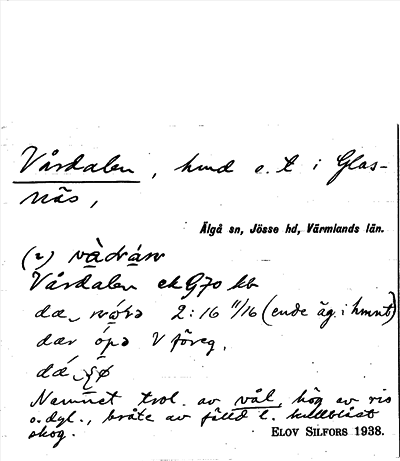 Vårdalen, hmd o. t i Glas-
näs,
Älgå sn, Jösse hd, Värmlands län.
(2)
Vårdalen ek G70 kb
2:16 11/16 (ende äg. i hmnt)
V föreg.
Namnet trol. av vål, hög av ris
o. dyl., bråte av fälld l. kullblåst
skog. ELOV SILFORS 1938.